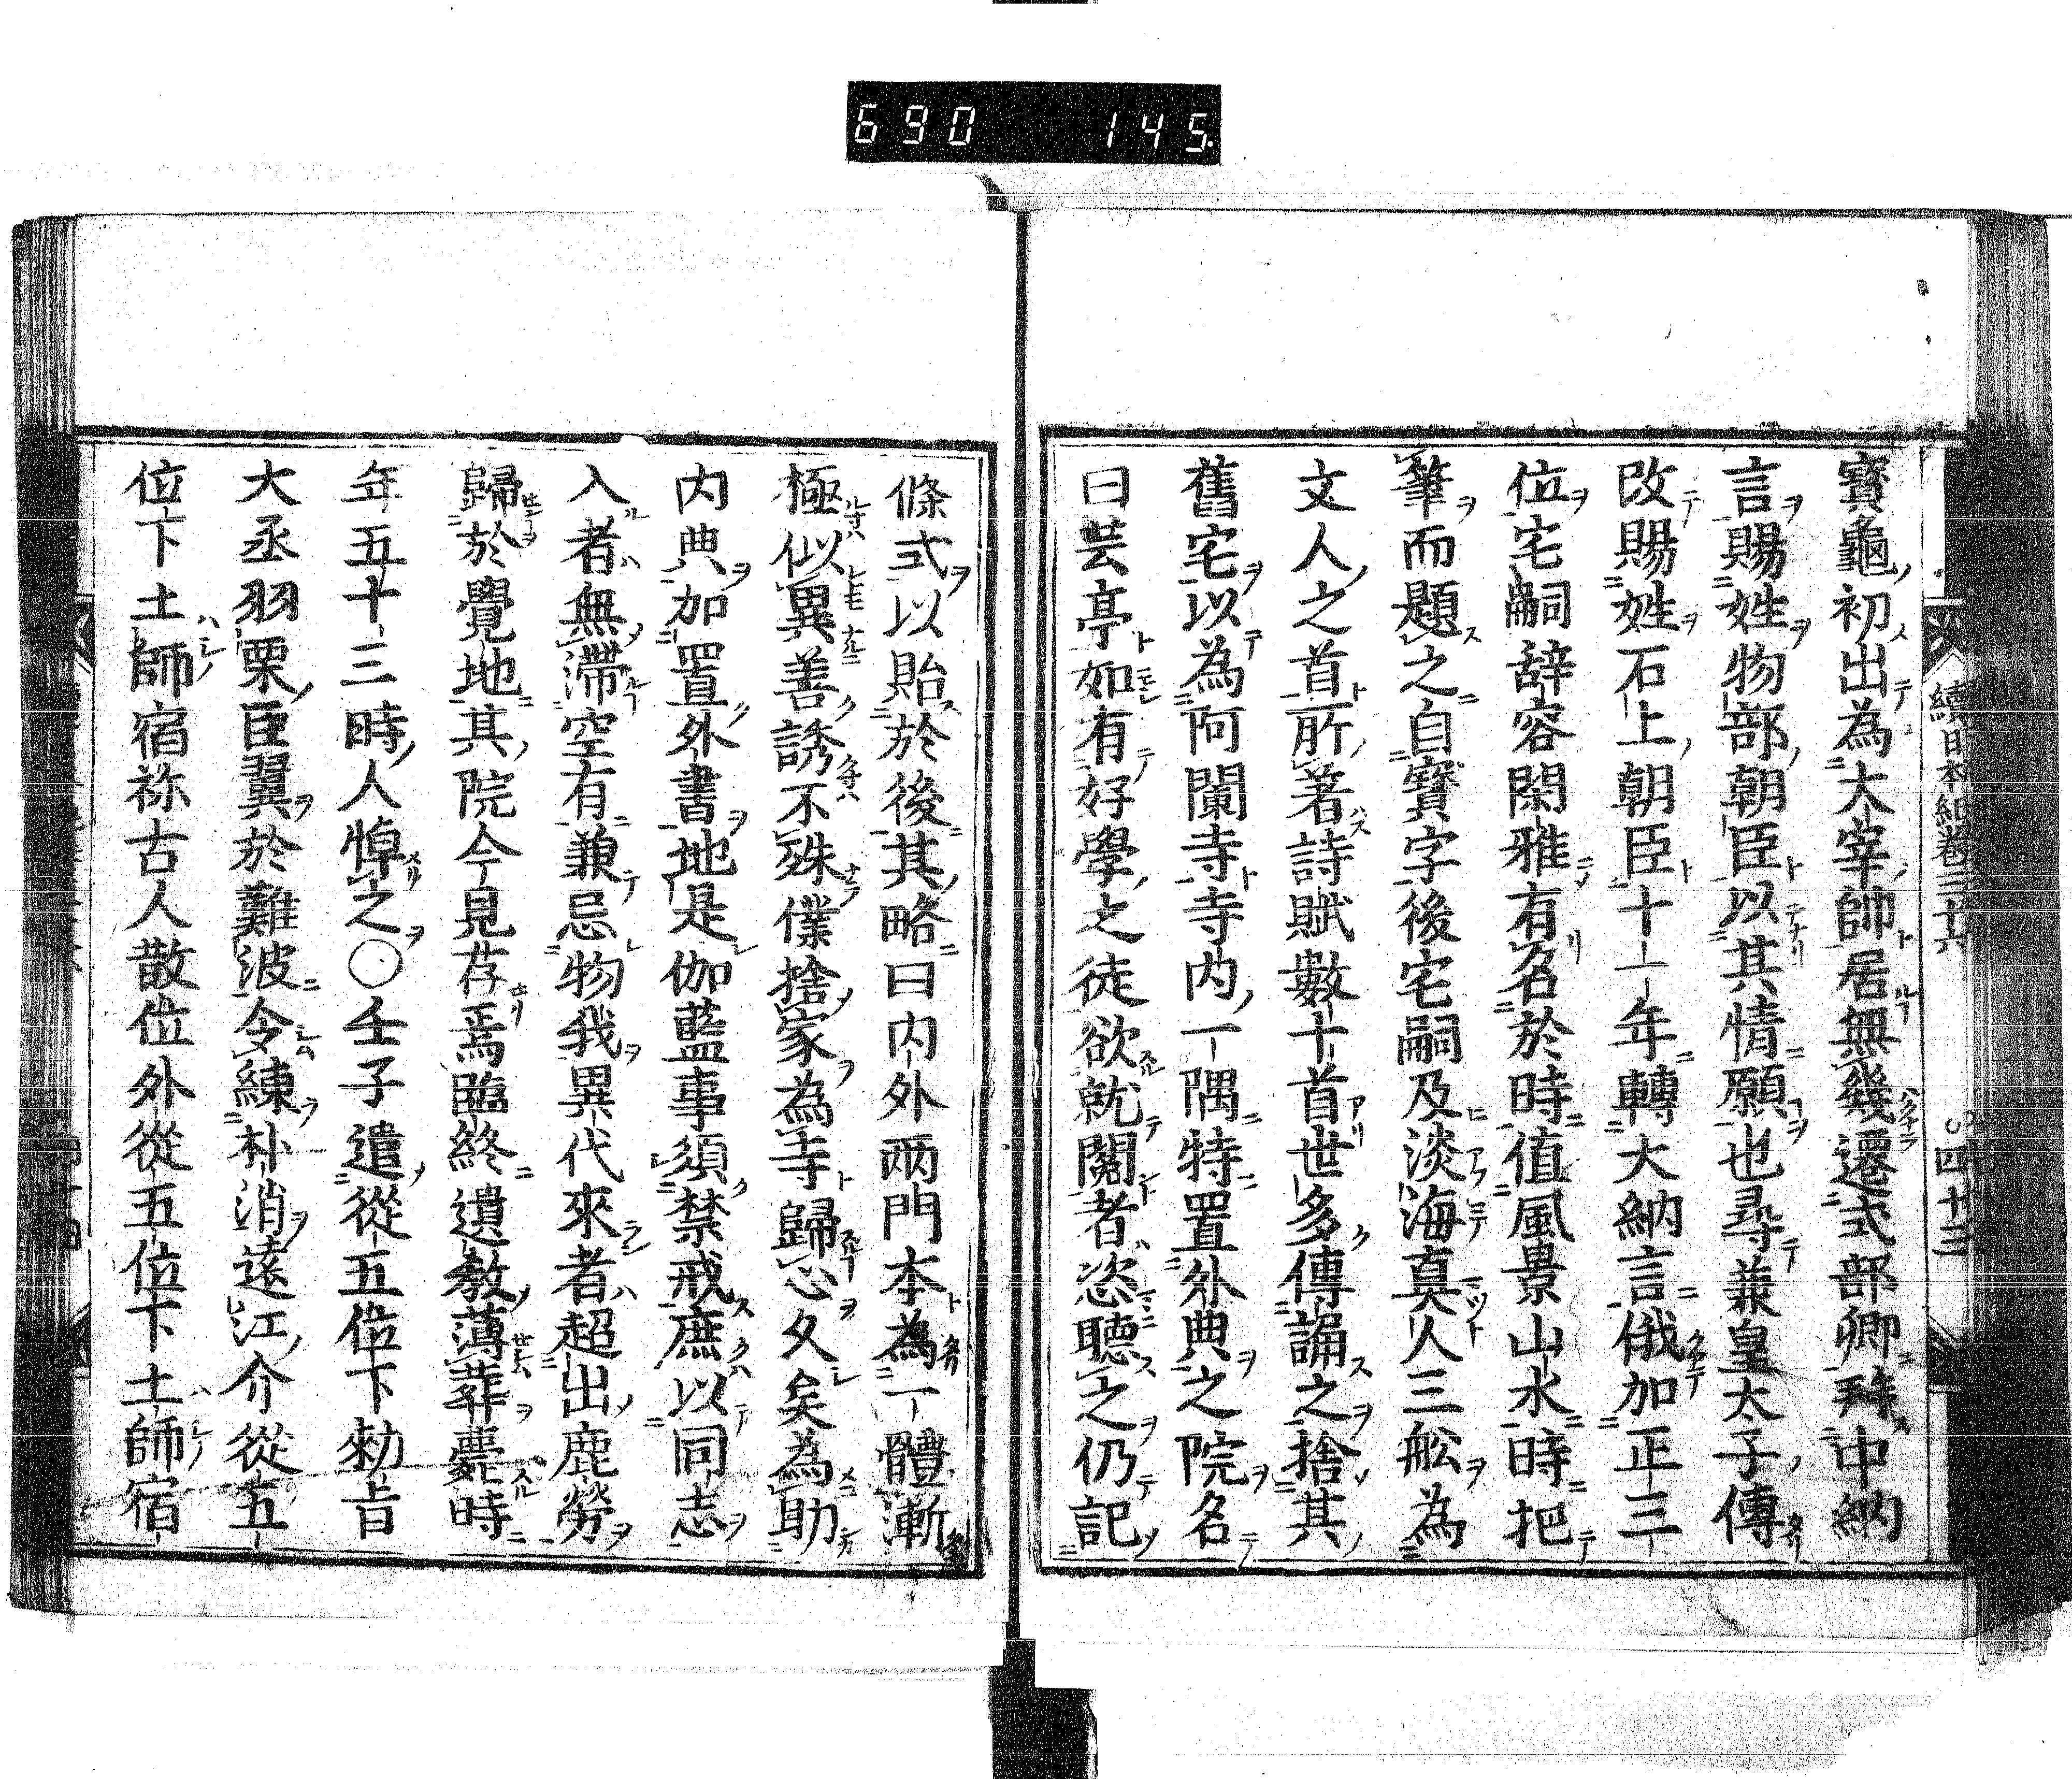 690 145
續日本紀卷三十六
四十三
寳龜初出為大宰帥居無幾遷式部卿拜中納
言賜姓物部朝臣以其情願也尋兼皇太子傅
改賜姓石上朝臣十一年轉大納言俄加正三
位宅嗣辞容閑雅有名於時值風景山水時把
筆而題之自寳字後宅嗣及淡海真人三舩為
文人之首所著詩賦數十首世多傳誦之捨其
舊宅以為阿閦寺寺内一隅特置外典之院名
曰芸亭如有好學之徒欲就閲者恣聽之仍記
條式以貽於後其略曰内外兩門本為一體漸
極似異善誘不殊僕捨家為寺歸心久矣為助
内典加置外書地是伽藍事須禁戒庶以同志
入者無滞空有兼忘物我異代來者超出塵勞
歸於覺地其院今見存焉臨終遺教薄葬薨時
年五十三時人悼之〇壬子遣從五位下勅旨
大丞羽栗臣翼於難波令練朴消遠江介從五
位下土師宿祢古人散位外從五位下土師宿